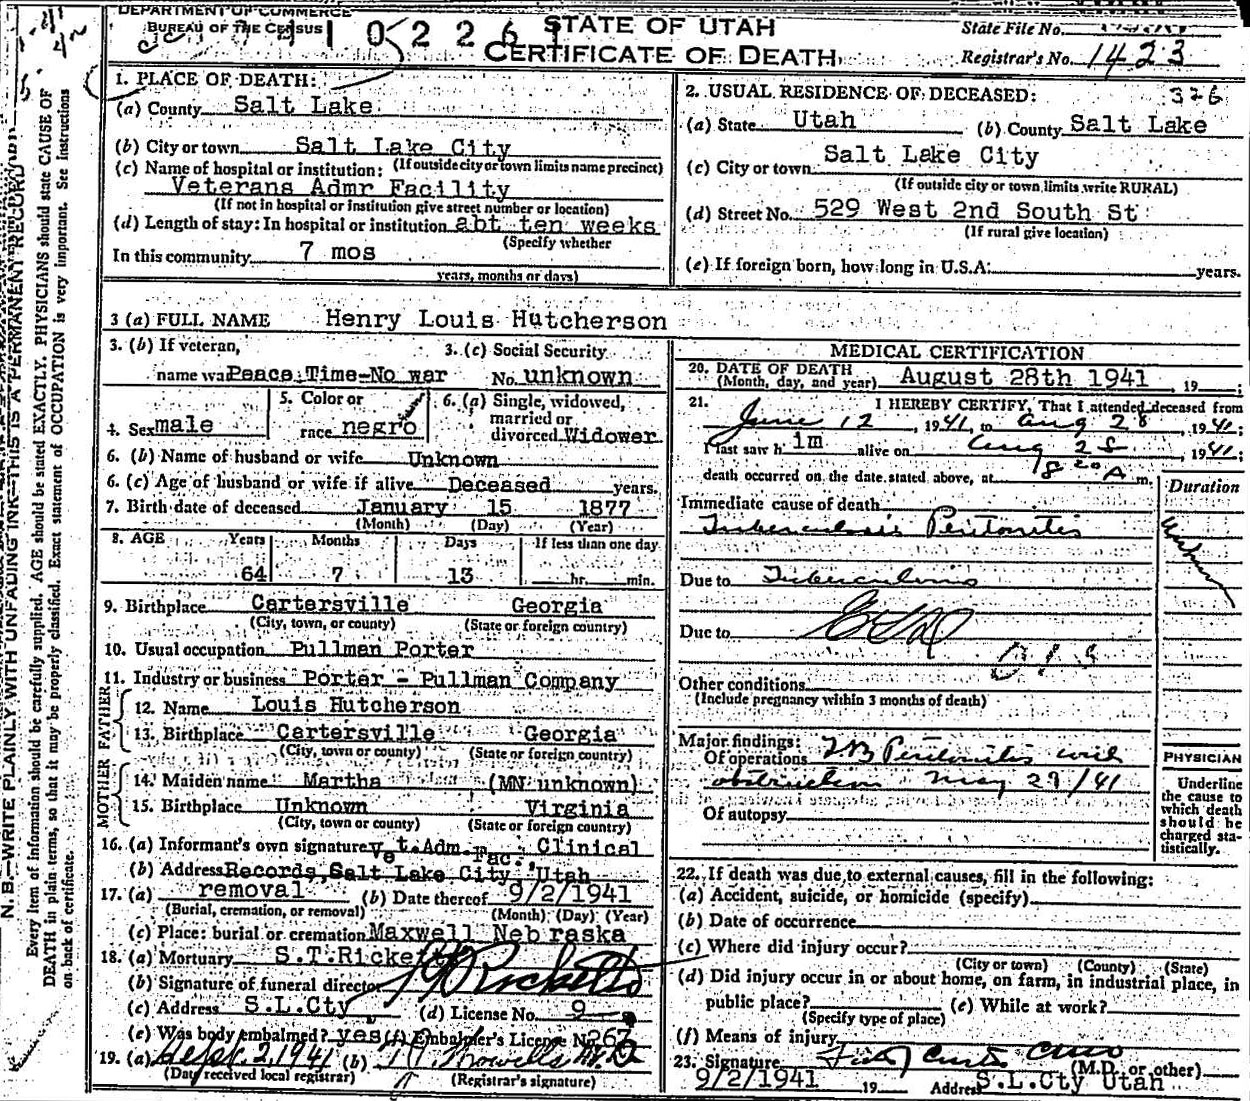 DEPARTMENT OF COMMERCE
BUREAU OF THE CENSUS
STATE OF UTAH
CERTIFICATE OF DEATH
State File No.
Registrar's No. 1423
1. PLACE OF DEATH:
(a) County Salt Lake
(b) City or town Salt Lake City
(If outside city or town limits name precinct)
(c) Name of hospital or institution:
Veterans Admr Facility
(If not in hospital or institution give street number or location)
(d) Length of stay: In hospital or institution abt ten weeks
(Specify whether
In this community 7 mos
years, months or days)
2. USUAL RESIDENCE OF DECEASED: 326
(a) State Utah (b) County Salt Lake
(c) City or town Salt Lake City
(If outside city or town limits write RURAL)
(d) Street No. 529 West 2nd South St
(If rural give location)
(e) If foreign born, how long in U.S.A. years.
3 (a) FULL NAME Henry Louis Hutcherson
3. (b) If veteran,
name wa Peace Time-No war
3. (c) Social Security
No. unknown
4. Sex male
5. Color or
race negro
6. (a) Single, widowed,
married or
divorced Widower
6. (b) Name of husband or wife Unknown
6. (c) Age of husband or wife if alive Deceased years.
7. Birth date of deceased January 15 1877
(Month) (Day) (Year)
8. AGE Years Months Days If less than one day
64 7 13 hr. min.
9. Birthplace Cartersville Georgia
(City, town, or county) (State or foreign country)
10. Usual occupation Pullman Porter
11. Industry or business Porter - Pullman Company
FATHER
12. Name Louis Hutcherson
13. Birthplace Cartersville Georgia
(City, town or county) (State or foreign country)
MOTHER
14. Maiden name Martha (MN unknown)
15. Birthplace Unknown Virginia
(City, town or county) (State or foreign country)
16. (a) Informant's own signature Vet.Adm.Fac. Clinical
(b) Address Records, Salt Lake City Utah
17. (a) removal (b) Date thereof 9/2/1941
(Burial, cremation, or removal) (Month) (Day) (Year)
(c) Place: burial or cremation Maxwell Nebraska
18. (a) Mortuary S.T.Ricketts
(b) Signature of funeral director Ricketts
(c) Address S.L.Cty (d) License No. 9
(e) Was body embalmed? yes (f) Embalmer's License No 267
19. (a) Sept. 2, 1941 (b)
(Date received local registrar) (Registrar's signature)
MEDICAL CERTIFICATION
20. DATE OF DEATH
(Month, day, and year) August 28th 1941, 19 ;
21. I HEREBY CERTIFY, That I attended deceased from
June 12, 1941, to Aug 28, 1941;
I last saw h im alive on Aug 28 1941;
death occurred on the date stated above, at 8 20 A m.
Duration
Immediate cause of death
Tuberculosis Peritonitis
Due to Tuberculosis
Due to
Other conditions
(Include pregnancy within 3 months of death)
Major findings:
Of operations TB Peritonitis with
obstruction May 29/41
Of autopsy
PHYSICIAN
Underline
the cause to
which death
should be
charged sta-
tistically.
22. If death was due to external causes, fill in the following:
(a) Accident, suicide, or homicide (specify)
(b) Date of occurrence
(c) Where did injury occur?
(City or town) (County) (State)
(d) Did injury occur in or about home, on farm, in industrial place, in
public place? (e) While at work?
(Specify type of place)
(f) Means of injury
23. Signature
(M.D. or other)
9/2/1941 19 Address S.L.Cty Utah
N. B.—WRITE PLAINLY WITH UNFADING INK—THIS IS A PERMANENT RECORD
Every item of information should be carefully supplied. AGE should be stated EXACTLY. PHYSICIANS should state CAUSE OF
DEATH in plain terms, so that it may be properly classified. Exact statement of OCCUPATION is very important. See Instructions
on back of certificate.